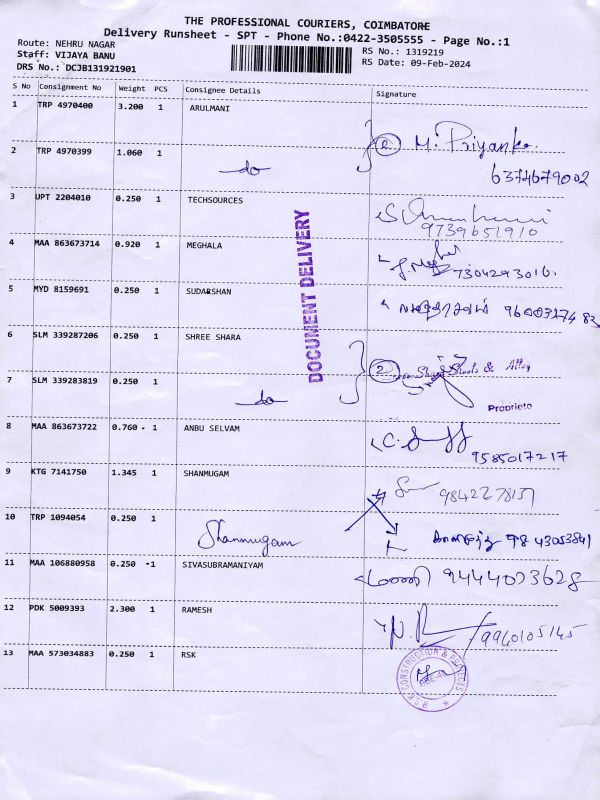 THE PROFESSIONAL COURIERS, COIMBATORE
Delivery Runsheet - SPT - Phone No.:0422-3505555 - Page No.:1
Route: NEHRU NAGAR
Staff: VIJAYA BANU
DRS No.: DCJB131921901
RS No.: 1319219
RS Date: 09-Feb-2024
S No Consignment No Weight PCS Consignee Details Signature
1 TRP 4970400 3.200 1 ARULMANI
2 M. Priyanka
2 TRP 4970399 1.060 1 do
6374679002
3 UPT 2204010 0.250 1 TECHSOURCES
9739651910
4 MAA 863673714 0.920 1 MEGHALA
7304293016.
5 MYD 8159691 0.250 1 SUDARSHAN
6 SLM 339287206 0.250 1 SHREE SHARA
2 & Alloy
7 SLM 339283819 0.250 1 do
Proprieto
8 MAA 863673722 0.760 - 1 ANBU SELVAM
C.
9585017217
9 KTG 7141750 1.345 1 SHANMUGAM
10 TRP 1094054 0.250 1 Shanmugam
98 43053841
11 MAA 106880958 0.250 -1 SIVASUBRAMANIYAM
9444023628
12 PDK 5009393 2.300 1 RAMESH
9940105145
13 MAA 573034883 0.250 1 RSK
RSK CONSTRUCTION & PROJECTS
DOCUMENT DELIVERY